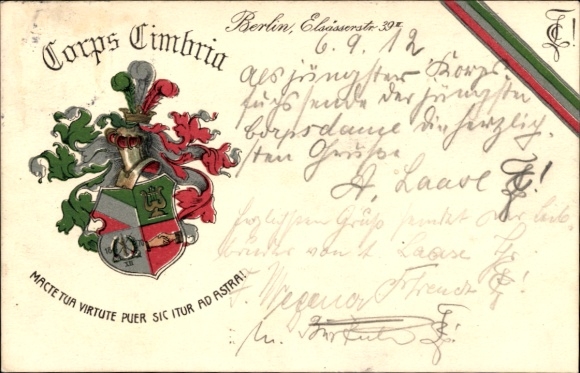 Corps Cimbria
Berlin, Elsässerstr. 39 II
6. 9. 12
als jüngster Korps
fuchs sende der jüngsten
Corpsdame die herzlich-
sten Grüße
A. Laase
Gruß sendet der Leib-
von A. Laase
F. Wegener
MACTE TUA VIRTUTE PUER SIC ITUR AD ASTRA!